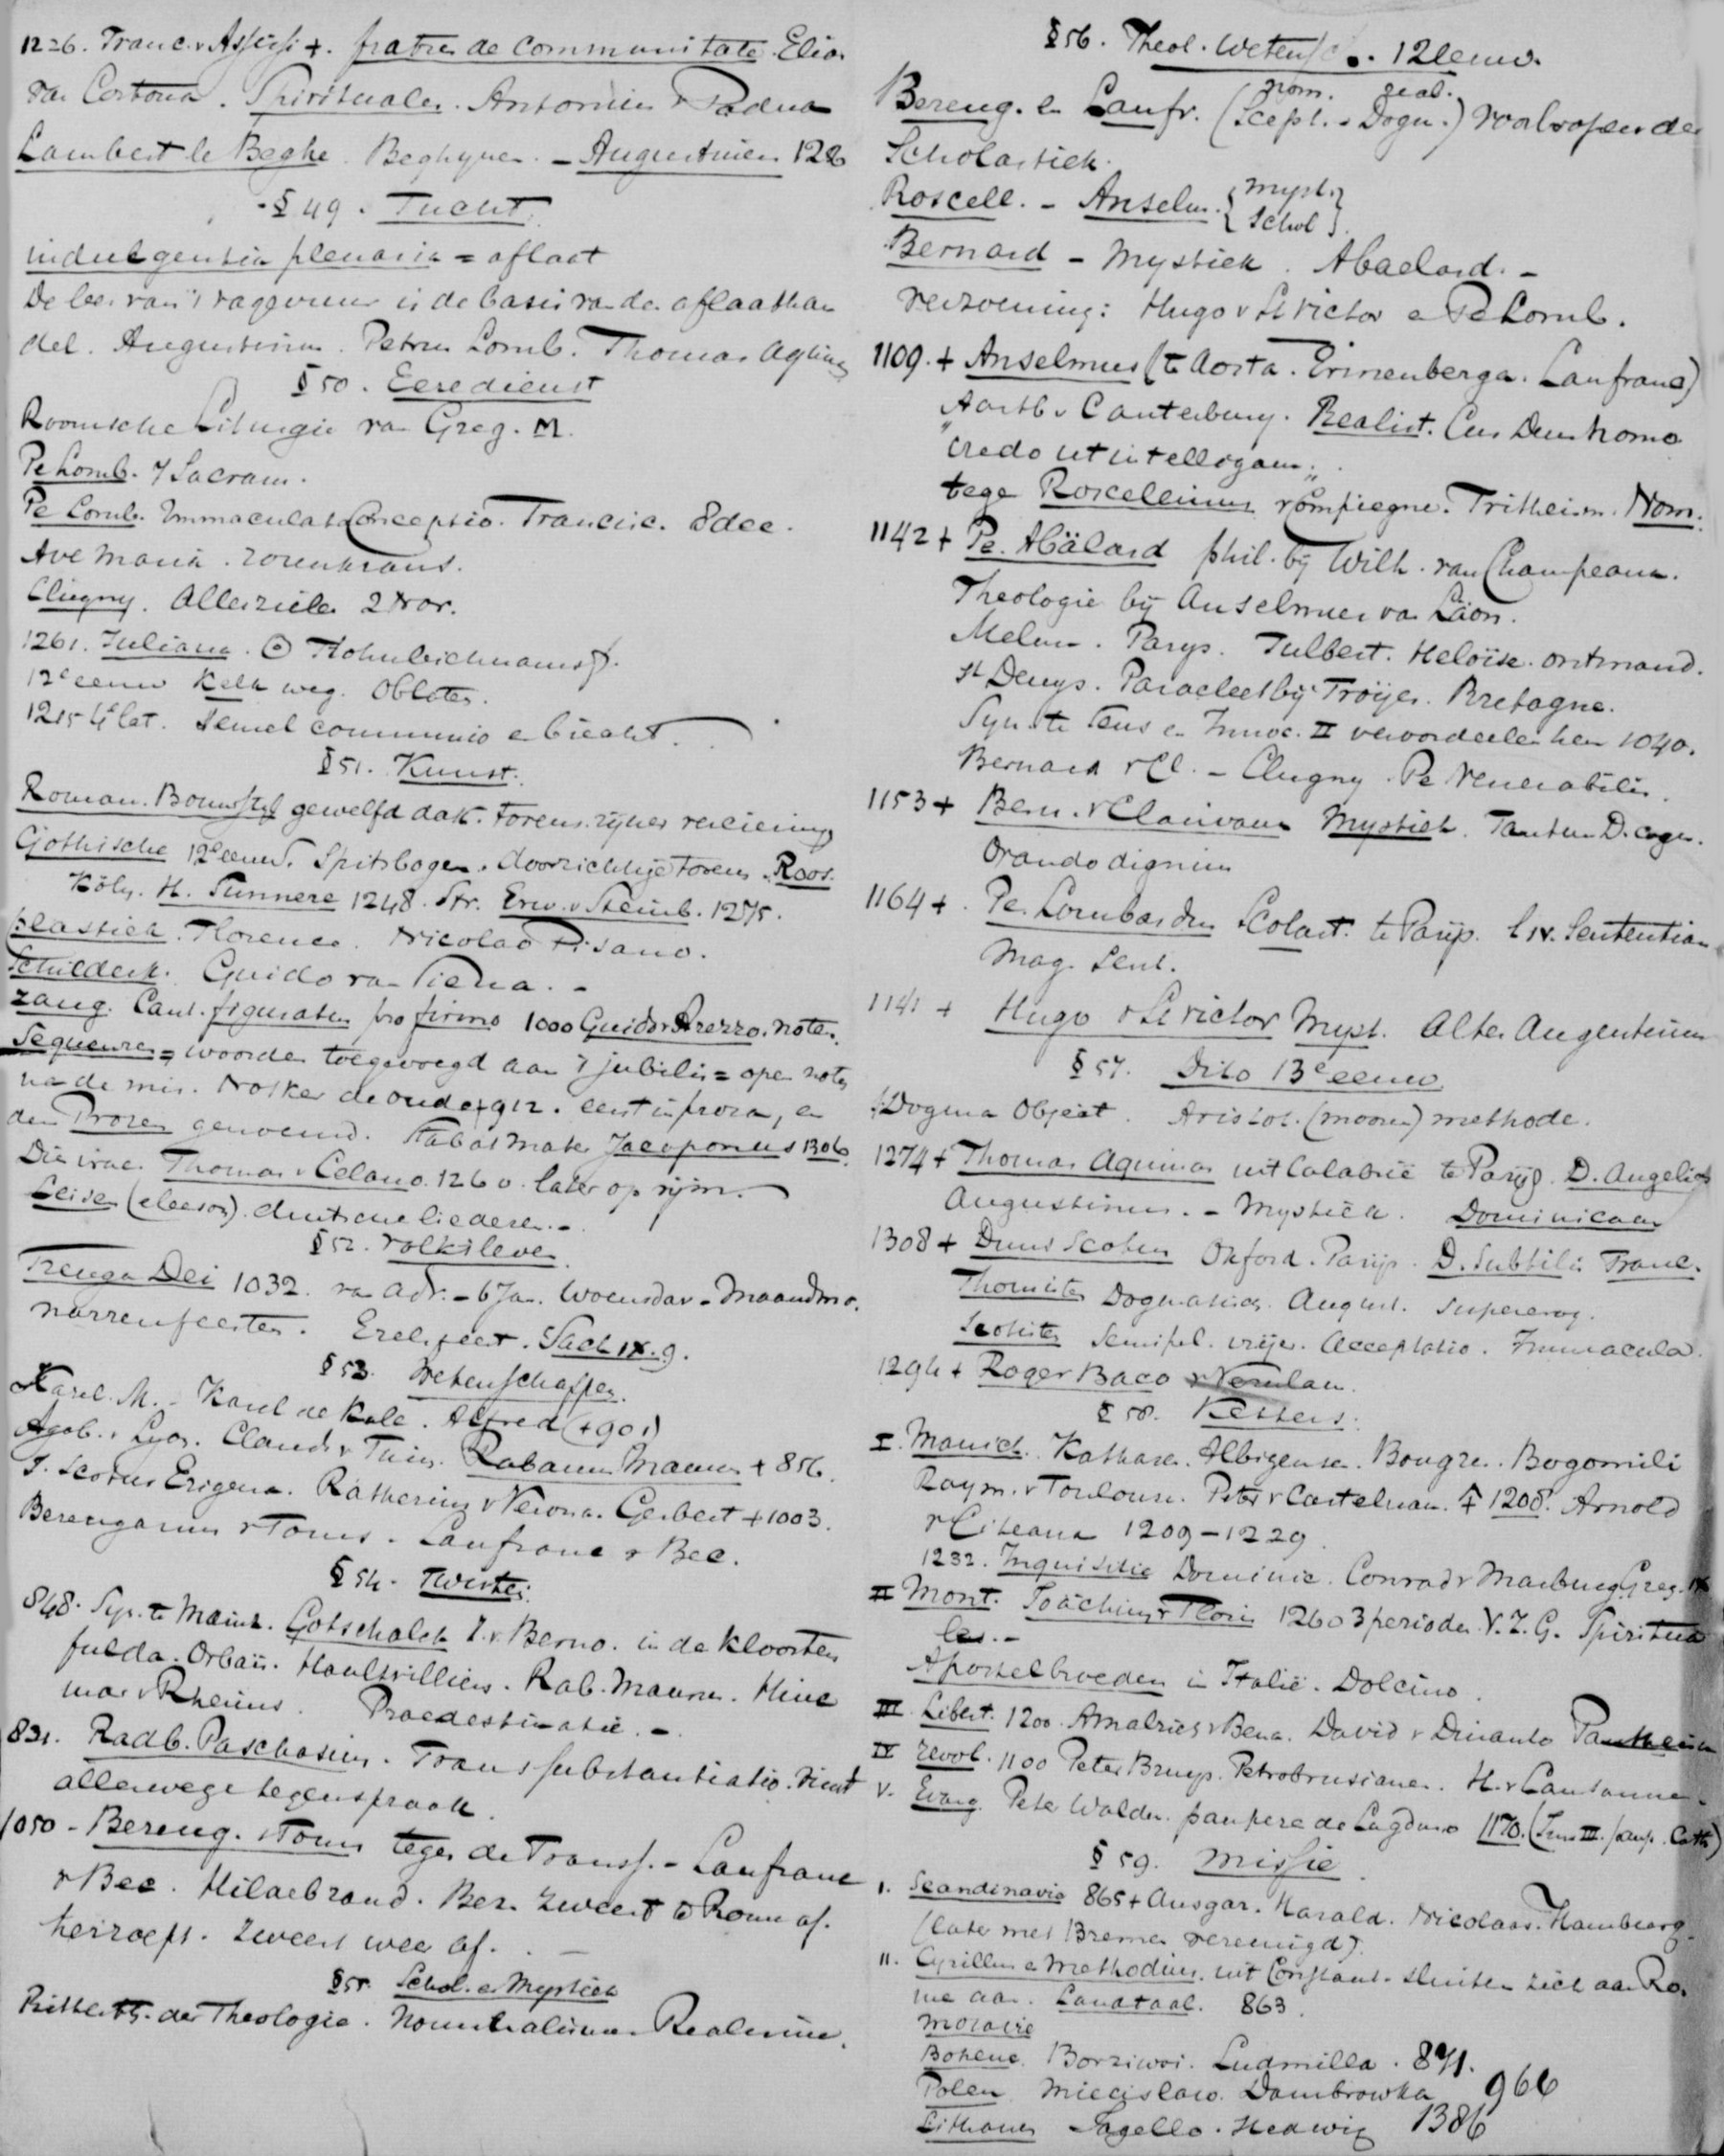 1226. Franc. v Assisi +. fratres de communitate. Elias
van Cortona. Spirituales. Antonius v Padua
Lambert le Beghe. Beghynen. - Augustinen 12
§ 49. Tucht.
indulgentia plenaria = aflaat
De leer van 't vagevuur is de basis van den aflaathan
del. Augustinus. Petrus Lomb. Thomas Aquin
§ 50. Eeredienst
Roomsche Liturgie van Greg. M.
Pe Lomb. 7 Sacram.
Pe Lomb. Immaculata Conceptio. Francisc. 8 dec.
Ave Maria. rozenkrans.
Clugny. Allerzielen 2 Nov.
1261. Juliana. Frohnleichnamsf.
12e eeuw Kelk weg. Oblaten.
1215 4e Lat. semel communio en biecht.
§ 51. Kunst.
Roman. Bouwstijl gewelfd dak. torens. rijker versiering
Gothische 12e eeuw. Spitsbogen. doorzichtige torens. Roos.
Köln. H. Sunnere 1248. Str. Erw. v Steinb. 1275.
plastiek. Florence. Nicolao Pisano.
Schilderk. Guido van Siena. -
Zang. Cant. figuratus pro firmo 1000 Guido v Arezzo. noten.
Sequenzen = woorden toegevoegd aan 't jubilis = open noten
na de mis. Notker de oude + 912. eerst in proza, en
dan Prozen genoemd. Stabat Mater Jacoponus 1306.
Dies irae. Thomas v Celano. 1260. later op rijm.
Leisen (eleeson) duitsche liederen. -
§ 52. Volksleven
Treuga Dei 1032. van Adv. - 6 Jan. Woensdav - Maandmo.
narrenfeesten. Ezelsfeest. Zach IX. 9.
§ 53. Wetenschappen.
Karel. M. - Karel de Kale. Alfred (+ 901)
Agob. v Lyon. Claud. v Turin. Rabanus Maurus + 856.
J. Scotus Erigena. Ratherius v Verona. Gerbert + 1003.
Berengarius v Tours. Lanfranc v Bec.
§ 54. Twisten.
848. Syn. te Mainz. Gotschalck Z. v. Berno. in de kloosters
fulda. Orbais. Hautvilliers. Rab. Maurus. Hinc
mar v Rheims. Praedestinatie. -
831. Radb. Paschasius. Transsubstantiatio. vindt
allerwege tegenspraak.
1050 - Bereng. v Tours tegen de Transs. - Lanfranc
v Bec. Hildebrand. Ber. zweert te Rome af.
herroept. zweert weer af. -
§ 55 Schol. en Mystiek
der Theologie. Nominalisme Realisme.
§ 56. Theol. Wetensch. 12 eeuw.
nom. real.
Bereng. en Lanfr. (Scept. - Dogm.) voorloopers der
Scholastiek.
Roscell. - Anselm. { Myst. }
{ Schol }.
Bernard - Mystiek. Abaelard. -
verzoening: Hugo v St Victor en Pe Lomb.
1109. + Anselmus (te Aosta. Ermenberga. Lanfranc)
Aartsb. v Canterbury. Realist. Cur Deus homo
"credo ut intelligam".
tegen Roscelinus v Compiegne. Tritheism. Nom.
1142 + Pe. Abälard phil. bij Wilh. van Champeaux.
Theologie bij Anselmus van Laon.
Melun. Parys. Fulbert. Heloïse. ontmand.
St Denys. Paracleet bij Troijes. Bretagne.
Syn. te Sens en Innoc. II veroordeelen hem 1040.
Bernard v Cl. - Clugny. Pe Venerabilis.
1153 + Bern. v Clairvaux Mystiek. Tantum D. cogn.
Orando dignius
1164 +. Pe. Lombardus Scolast. te Parijs. l IV. Sententiar
Mag. Sent.
1141 + Hugo v St Victor Myst. Alter Augustinus
§ 57. Dito 13e eeuw
Dogma Object. Aristot. (mooren) methode.
1274 + Thomas Aquinas uit Calabrië te Parijs. D. Angelic
Augustinus. - Mystiek. Dominicaan
1308 + Duns Scotus Oxford. Parijs. D. Subtilis Franc.
Thomisten Dogmatisch. August. supererog.
Scotisten Semipel. vrijer. Acceptatio. Immacula.
1294 + Roger Baco v Verulam.
§ 58. Ketters.
I. Manich. Katharen. Albigensen. Bougres. Bogomili
Raym. v Toulouse. Peter v Castelnau. + 1208. Arnold
v Citeaux 1209 - 1229.
1232. Inquisitie Dominic. Conrad v Marburg. Greg. IX
II Mont. Joachim v Floris 1260 3 perioden V. Z. G. Spiritua
les. -
Apostelbroeders in Italië. Dolcino.
III. Libert. 1200. Amalrich v Bena. David v Dinanto Pantheism
IV revol. 1100 Peter Bruys. Petrobrusianen. H. v Lausanne.
V. Evang. Peter Waldus. paupere de Lugduno 1170. (Inn III. paup. Cath)
§ 59. Missie.
I. Scandinavie 865 + Ansgar. Harald. Nicolaas. Hamburg.
(later met Bremen vereenigd).
II. Cyrillus en Methodius. uit Constant. sluiten zich aan Ro.
me aan. Landtaal. 863.
Moravie
Bohene. Borziwoi. Ludmilla. 871.
Polen Miecislaw. Dambrowka 966
Lithauen Jagello. Hedwig 1386